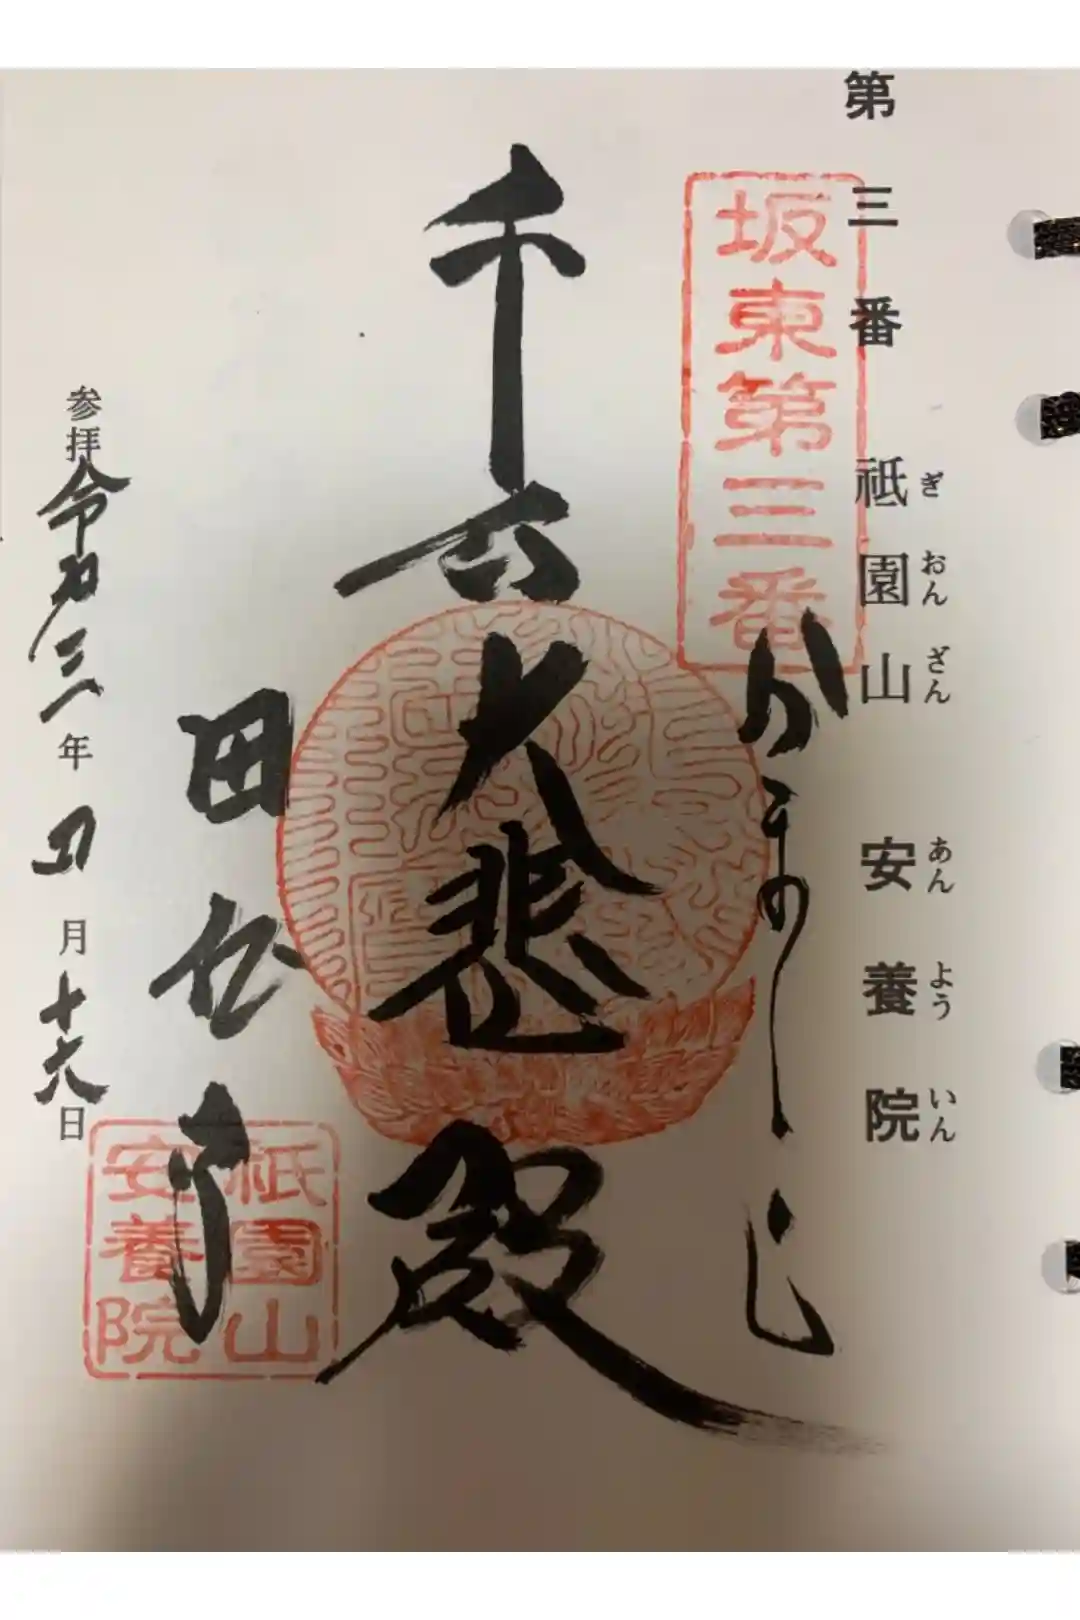 第三番 祇園山 安養院
ぎおんざん あんよういん
坂東第三番
かまくら
千手大悲殿
田代寺
参拝令和三年四月十六日
祇園山
安養院